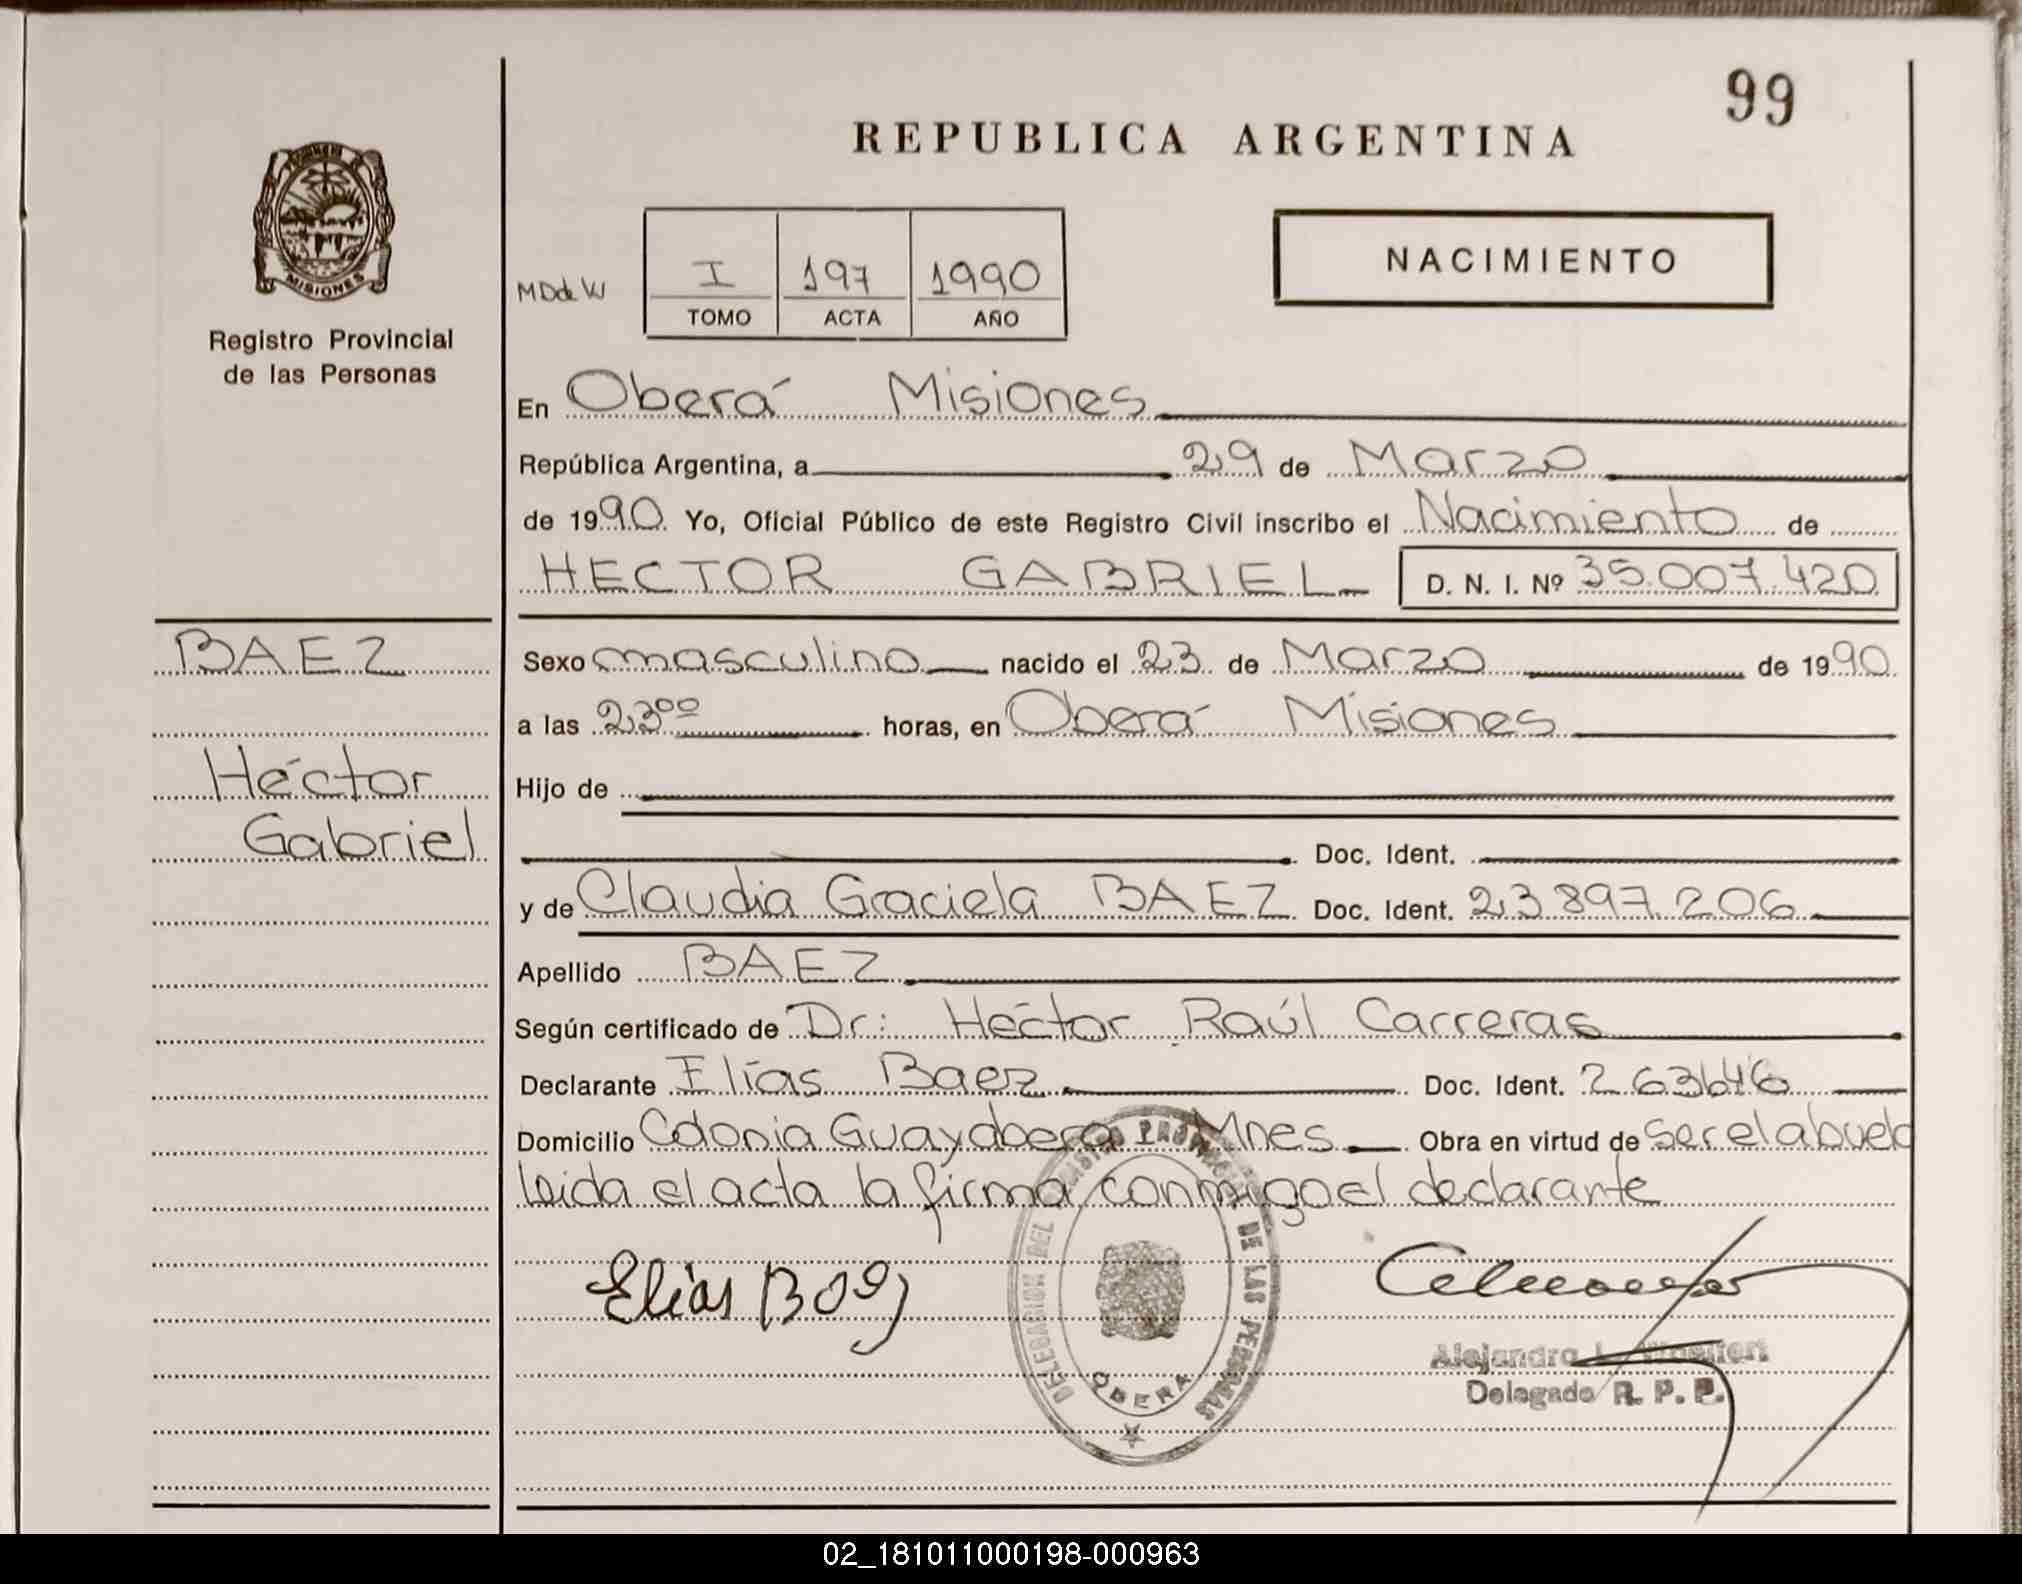 99
REPUBLICA ARGENTINA
MISIONES
Registro Provincial
de las Personas
NACIMIENTO
MDdeW
I 197 1990
TOMO ACTA AÑO
En Oberá Misiones
República Argentina, a 29 de Marzo
de 1990. Yo, Oficial Público de este Registro Civil inscribo el Nacimiento de
HECTOR GABRIEL D. N. I. Nº 35.007.420
BAEZ
Héctor
Gabriel
Sexo masculino nacido el 23 de Marzo de 1990
a las 23⁰⁰ horas, en Oberá Misiones
Hijo de
Doc. Ident.
y de Claudia Graciela BAEZ Doc. Ident. 23897.206
Apellido BAEZ
Según certificado de Dr: Héctor Raúl Carreras
Declarante Elías Baez Doc. Ident. 263646
Domicilio Colonia Guayabera Mnes Obra en virtud de ser el abuelo
leida el acta la firma conmigo el declarante
Elias
DELEGACION DEL REGISTRO PROVINCIAL DE LAS PERSONAS
OBERA
Alejandro
Delegado R. P. P.
02_181011000198-000963